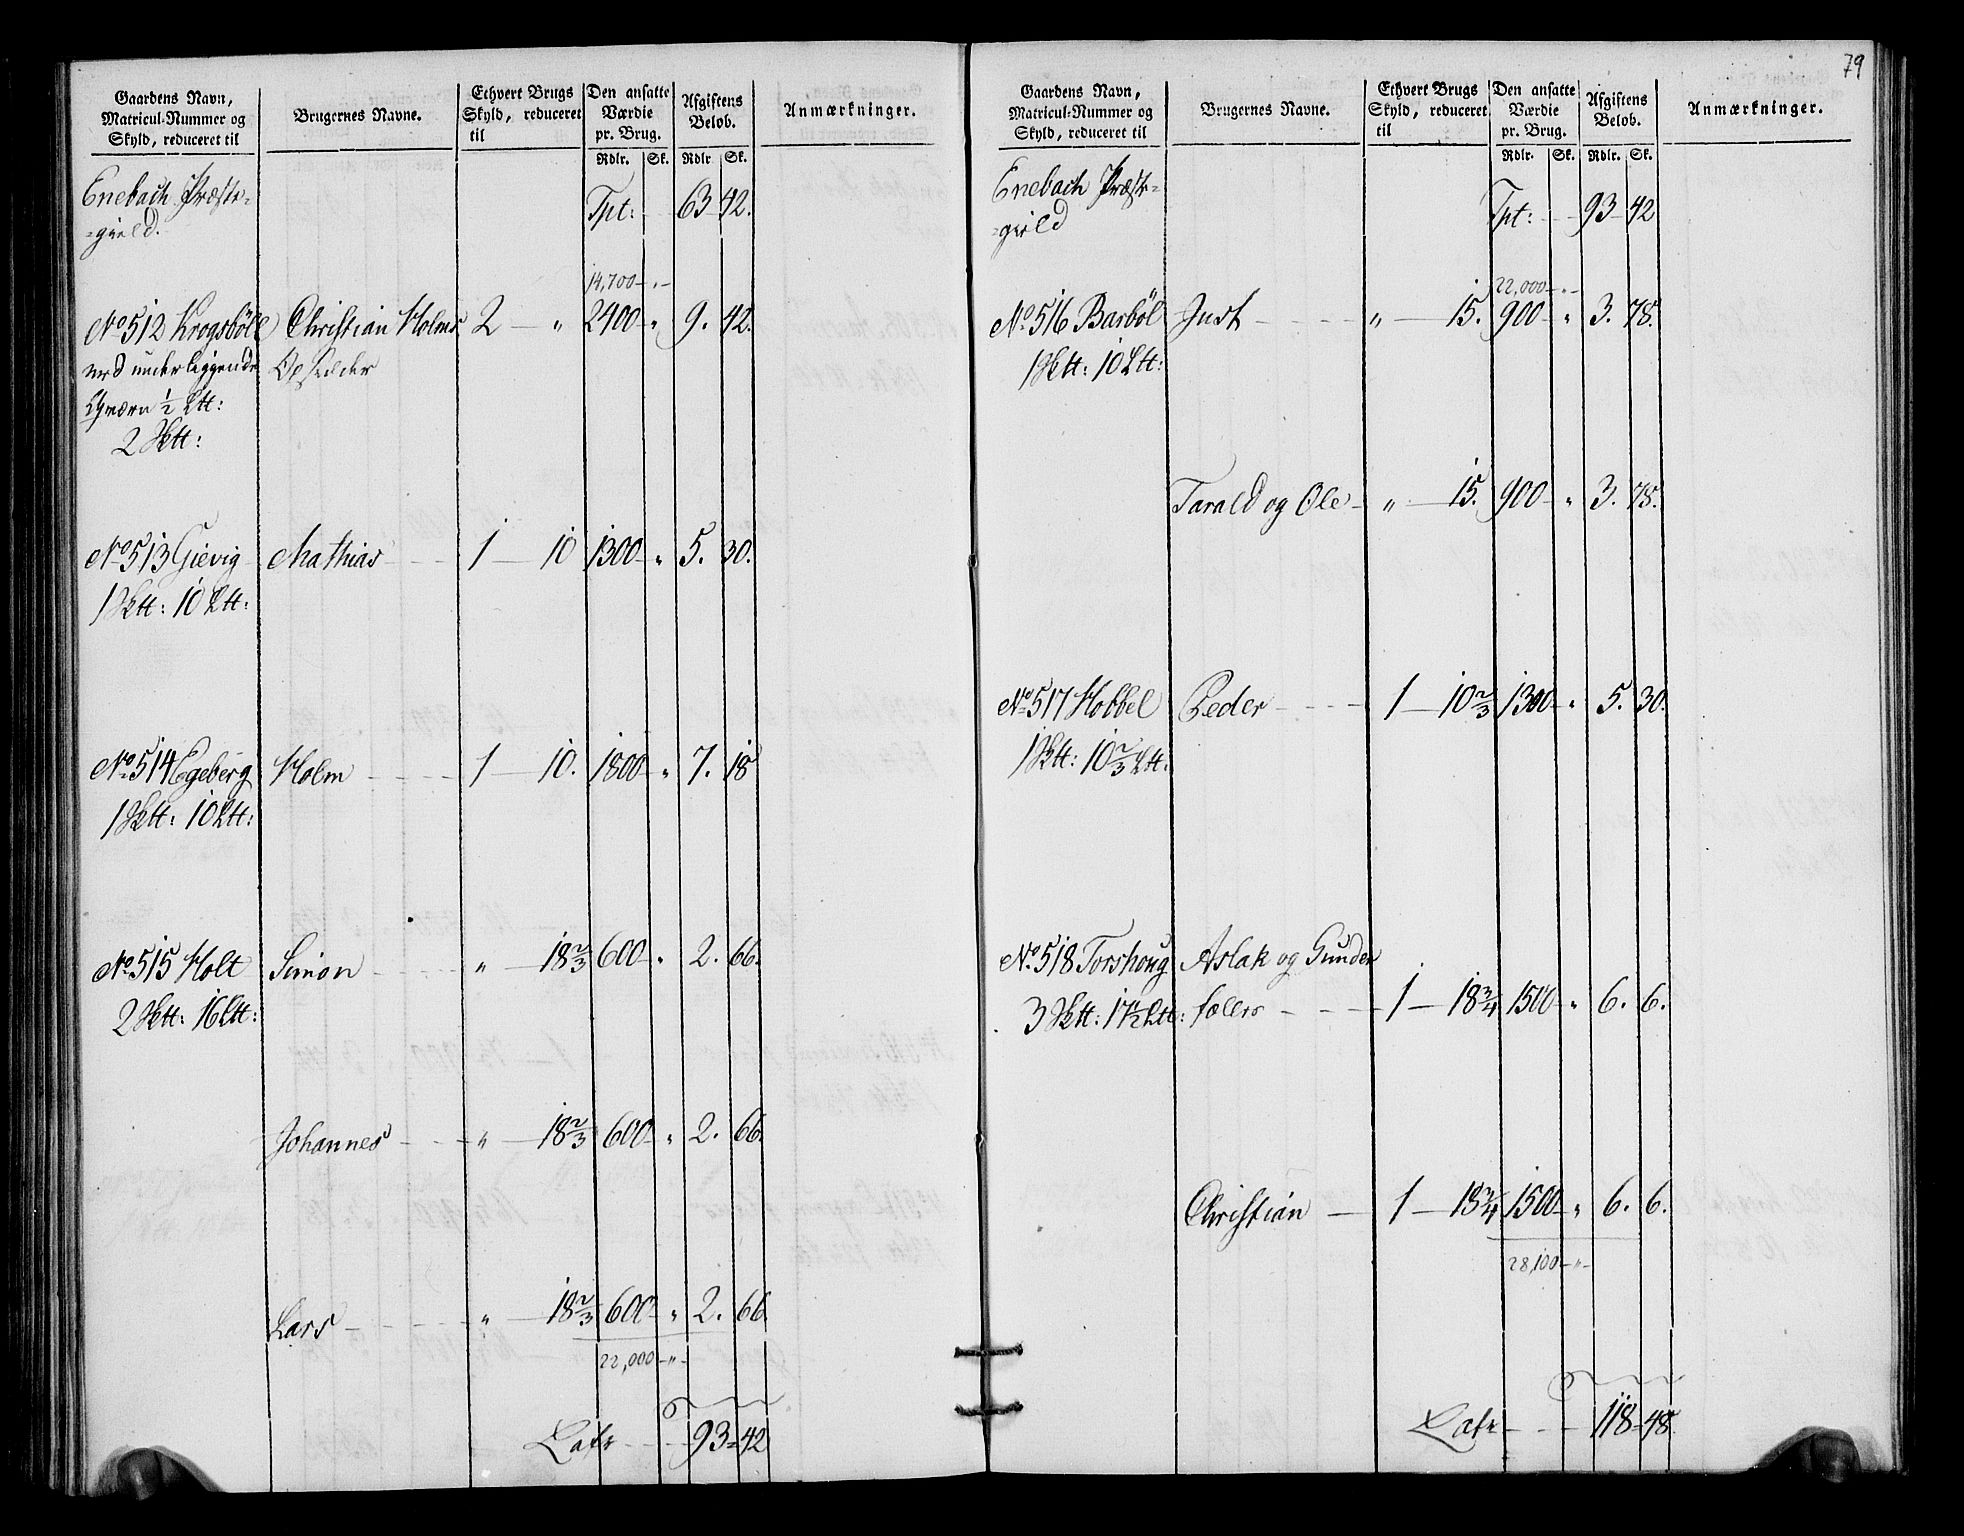 Gaardens Navn, Matricul-Nummer og Skyld, reduceret til | Brugernes Navne. | Ethvert Brugs Skyld, reduceret til | Den ansatte Værdie pr. Brug. | Afgiftens Beløb. | Anmærkninger.
Rdlr. Sk. Rdlr Sk.
Enebach Præste- Tpt: 63 42.
=gield.
14,700 - „ -
No 512 Krogsböll Christian Holms 2 — „ 2400 „ 9. 42.
med underliggende Opsidder
Qværn ½ Ltt:
2 Sktt:
No 513 Gievig Mathias 1 — 10 1300 „ 5. 30.
1 Sktt: 10 Ltt:
No 514 Egeberg Holm 1 — 10. 1800 „ 7. 18
1 Sktt: 10 Ltt:
No 515 Holt Simon „ — 18 2/3 600 „ 2. 66.
2 Sktt: 16 Ltt:
Johannes „ — 18 2/3 600 „ 2. 66.
Lars „ — 18 2/3 600 „ 2. 66
22,000 - „ -
Latr 93 = 42
79
Gaardens Navn, Matricul-Nummer og Skyld, reduceret til | Brugernes Navne. | Ethvert Brugs Skyld, reduceret til | Den ansatte Værdie pr. Brug. | Afgiftens Beløb. | Anmærkninger.
Rdlr. Sk. Rdlr. Sk.
Enebach Præste- Tpt: 93 42
=gield
22,000 - „ -
No 516 Barböl Just „ — 15. 900 „ 3. 78.
1 Sktt: 10 Ltt:
Tarald og Ole „ — 15. 900 „ 3. 78.
No 517 Hobbel Peder 1 — 10 2/3 1300 „ 5. 30.
1 Sktt: 10 2/3 Ltt:
No. 518 Torshoug Aslak og Gunder
3 Sktt: 17½ Ltt: fælles 1 — 18 3/4 1500 „ 6. 6.
Christian 1 — 18 3/4 1500 „ 6. 6.
28,100 - „ -
Latr 118 = 48.